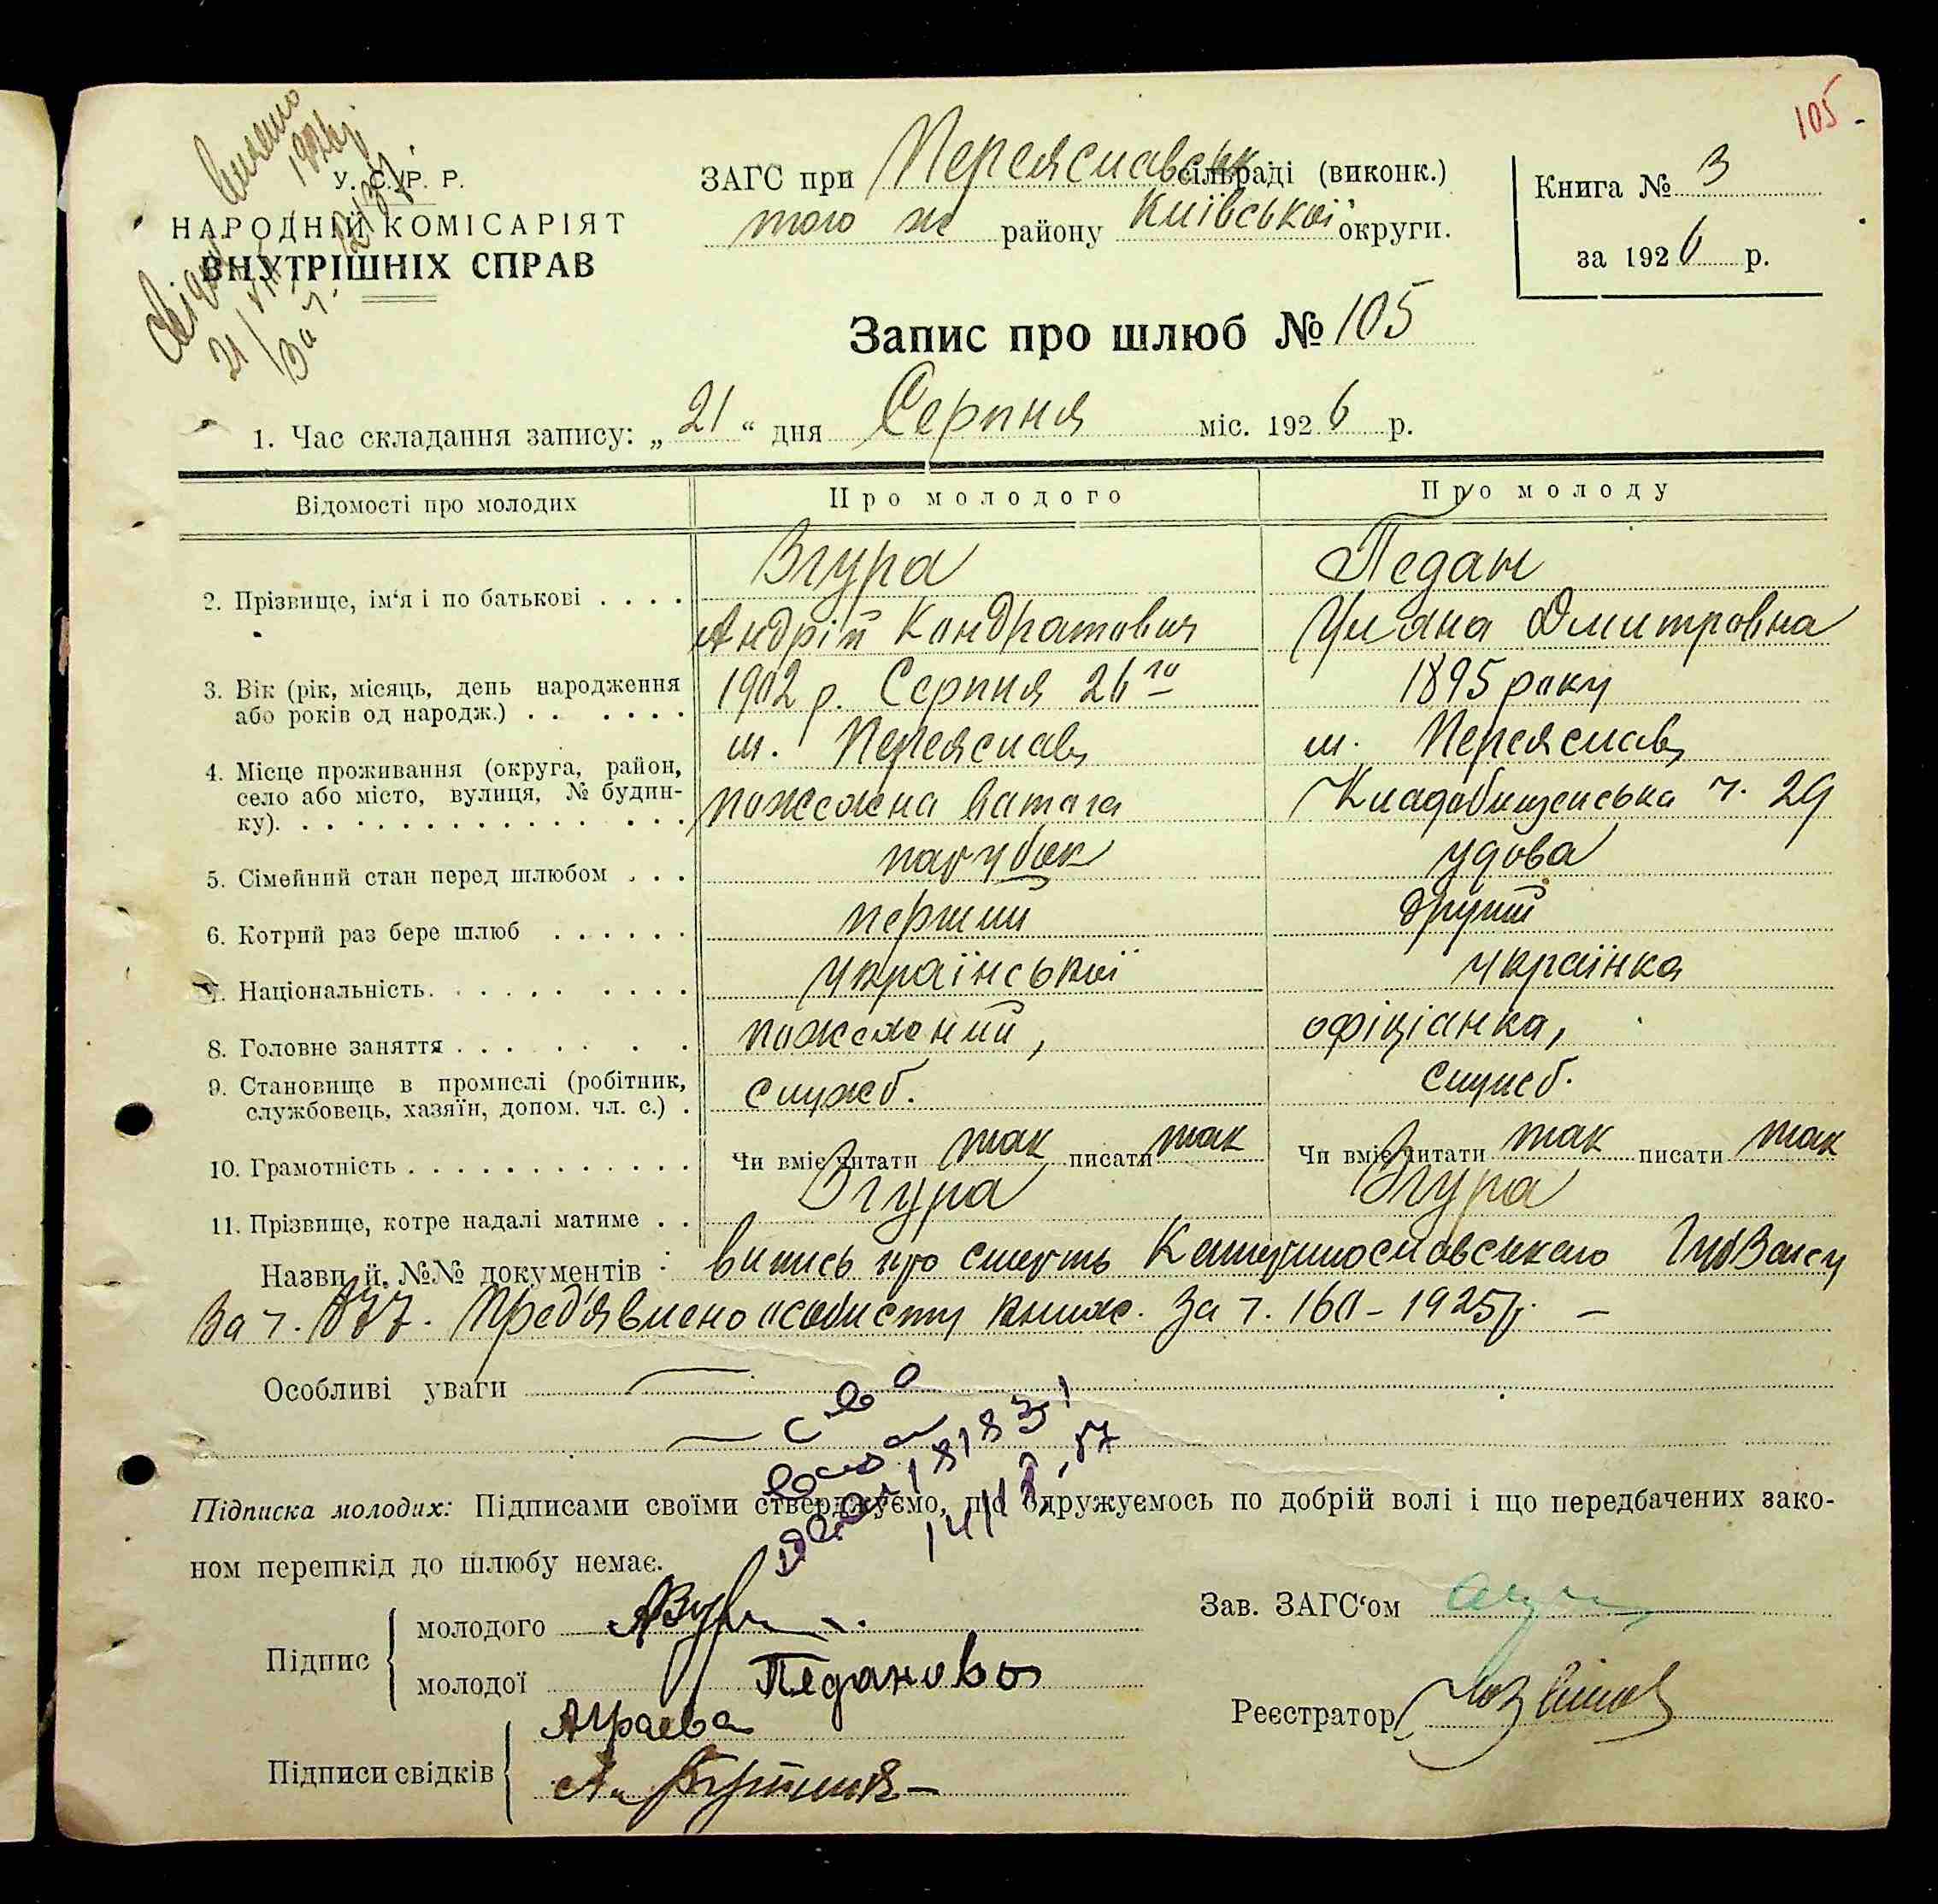 105
У. С. Р. Р.
НАРОДНІЙ КОМІСАРІЯТ
ВНУТРІШНІХ СПРАВ
ЗАГС при Переяславськ сільраді (виконк.)
того же району Київської округи.
Книга № 3
за 1926 р.
Запис про шлюб № 105
1. Час складання запису: „21“ дня Серпня міс. 1926 р.
Відомості про молодих Про молодого Про молоду
2. Прізвище, ім‘я і по батькові . . . . Згура Педан
Андрій Кондратович Уляна Дмитровна
3. Вік (рік, місяць, день народження або років од народж.) . . . . . . 1902 р. Серпня 26го 1895 року
4. Місце проживання (округа, район, село або місто, вулиця, № будинку). м. Переяслав, м. Переяслав,
пожежна ватага Кладовищенська ч. 29
5. Сімейний стан перед шлюбом . . . парубок удова
6. Котрий раз бере шлюб . . . . . . перший другий
7. Національність. . . . . . . . . . української українка
8. Головне заняття . . . . . . . . пожежний, офіціанка,
9. Становище в промислі (робітник, службовець, хазяїн, допом. чл. с.) . служб. служб.
10. Грамотність . . . . . . . . . . . . . Чи вміє читати так писати так Чи вміє читати так писати так
11. Прізвище, котре надалі матиме . . Згура Згура
Назви й. №№ документів : випись про смерть Катеринославського ГубЗагсу
За ч. 877. Пред'явлено особисту книж. За ч. 160 – 1925 р. —
Особливі уваги
Підписка молодих: Підписами своїми стверджуємо, що одружуємось по добрій волі і що передбачених законом перешкід до шлюбу немає.
Підпис молодого АЗгура
молодої Педанова
Зав. ЗАГС‘ом
Реєстратор
Підписи свідків